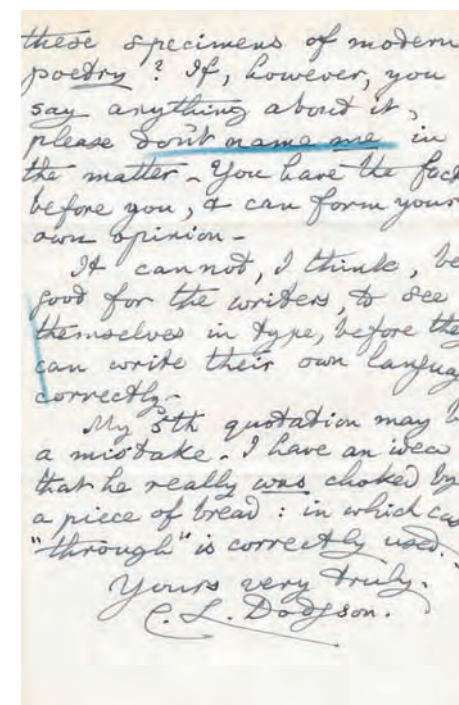 these specimens of modern
poetry? If, however, you
say anything about it,
please don't name me in
the matter – You have the fact
before you, & can form your
own opinion –
It cannot, I think, be
good for the writers, to see
themselves in type, before they
can write their own languag
correctly –
My 5th quotation may b
a mistake. I have an idea
that he really was choked by
a piece of bread: in which cas
"through" is correctly used.
Yours very truly,
C. L. Dodgson.